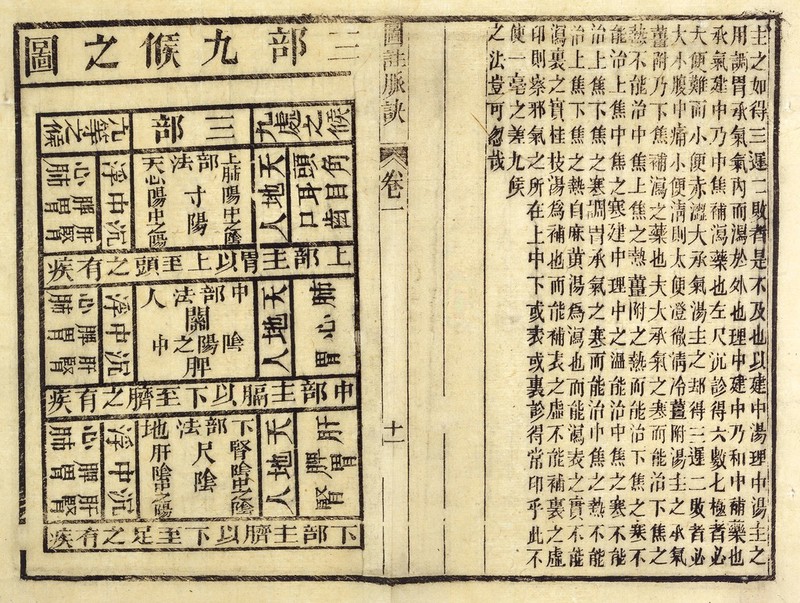 主之如得三遲二敗者是不及也以建中湯理中湯主之
用調胃承氣氣內而瀉於外也理中建中乃和中補藥也
承氣建中乃中焦補瀉藥也左尺沉診得六數七極者必
大便難而小便赤澀大承氣湯主之却得三遲二敗者必
大木腹中痛小便清則太便澄徹清冷薑附湯主之承氣
薑附乃下焦補瀉之藥也夫大承氣之寒而能治下焦之
熱不能治中焦上焦之熱薑附之熱而能治下焦之寒不
能治上焦中焦之寒建中理中之溫能治中焦之寒不能
治上焦下焦之寒調胃承氣之寒而能治中焦之熱不能
治上焦下焦之熱自麻黃湯爲瀉也而能瀉表之實不能
瀉裏之實桂枝湯爲補也而能補表之虛不能補裏之虛
印則察邪氣之所在上中下或表或裏診得常印乎此不
使一毫之差九候
之法豈可忽哉
圖註脈訣 卷一 十一
三部九候之圖
九處之候
三部
九等之候
頭角
耳目
口齒
天地人
上肺陽中之陰
部寸陽
法
天心陽中之陽
浮中沉
心脾腎
肺胃腎
上部主胃以上至頭之有疾
肺
心
胃
天地人
中部法人
關陽之中
陰
脾
浮中沉
心脾肝
肺胃腎
中部主膈以下至臍之有疾
肝
脾胃
腎
天地人
下腎陰中之陰
部尺陰
法
地肝陰中之陽
浮中沉
心脾肝
肺胃腎
下部主臍以下至足之有疾